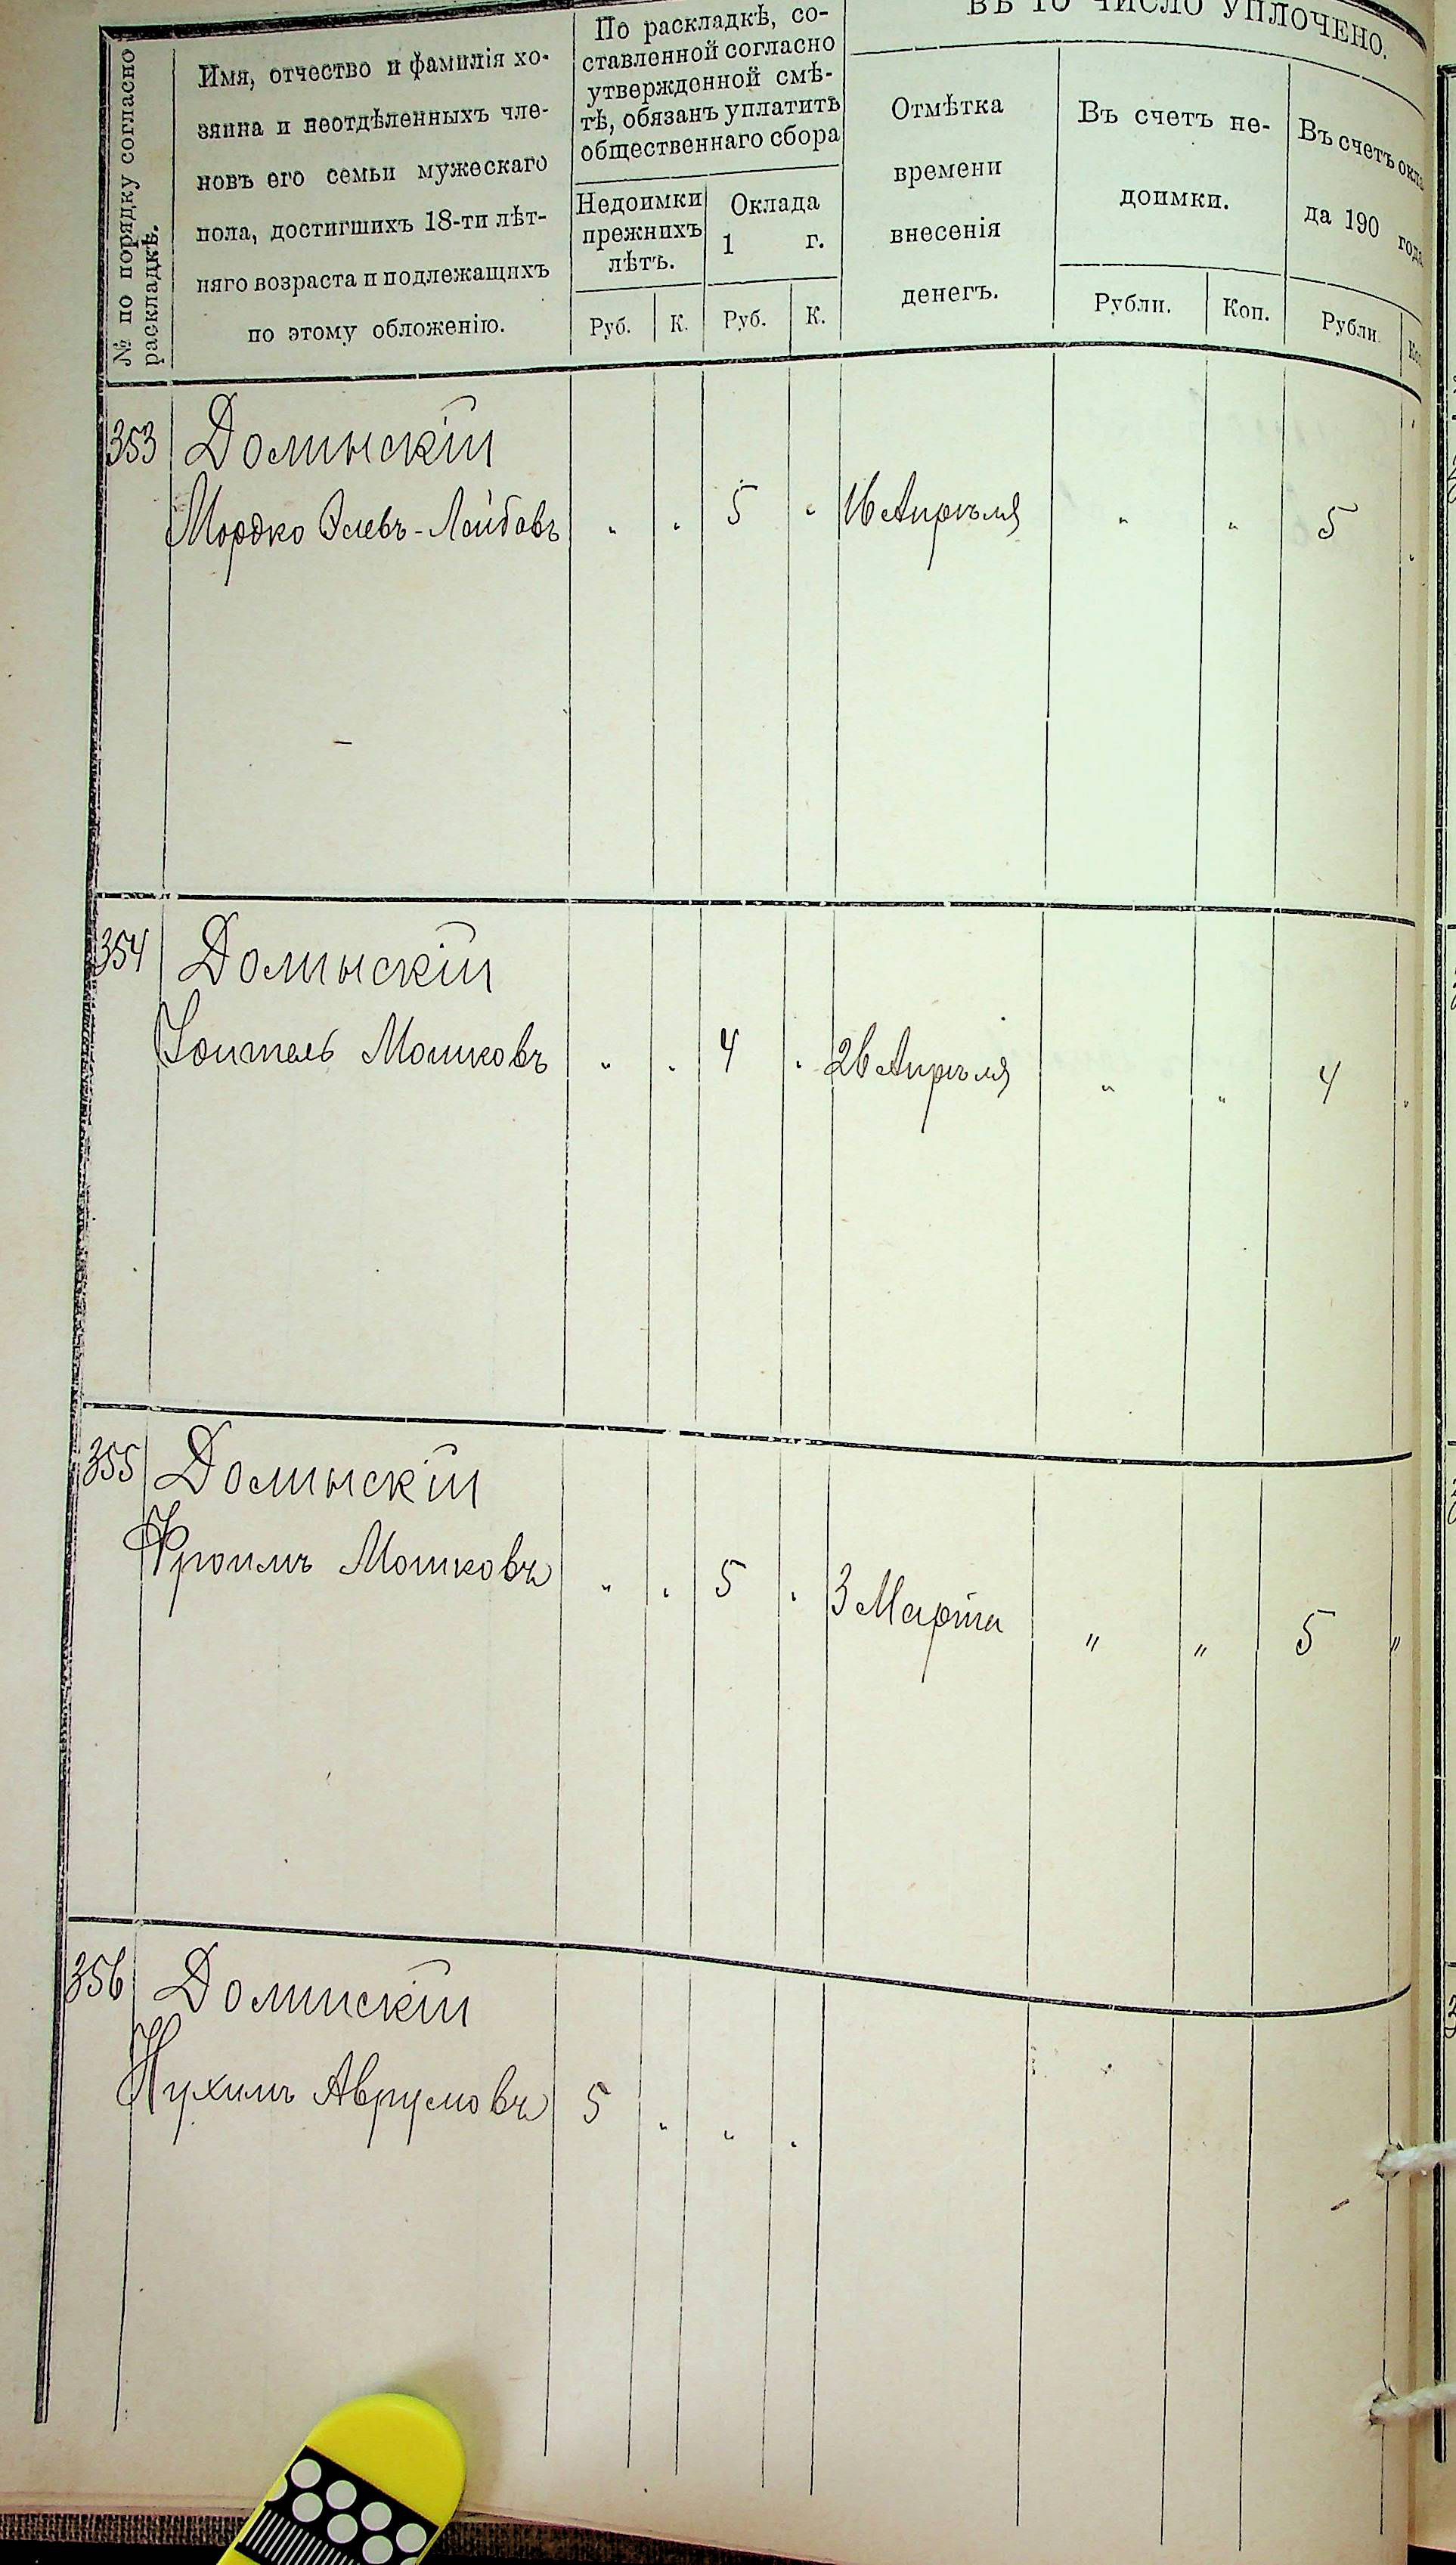 № по порядку согласно
раскладкѣ.
Имя, отчество и фамилія хо-
зяина и неотдѣленныхъ чле-
новъ его семьи мужескаго
пола, достигшихъ 18-ти лѣт-
няго возраста и подлежащихъ
по этому обложенію.
По раскладкѣ, со-
ставленной согласно
утвержденной смѣ-
тѣ, обязанъ уплатить
общественнаго сбора
Недоимки
прежнихъ
лѣтъ.
Оклада
1 г.
Руб. К. Руб. К.
ВЪ ТО ЧИСЛО УПЛОЧЕНО.
Отмѣтка
времени
внесенія
денегъ.
Въ счетъ не-
доимки.
Рубли. Коп.
Въ счетъ окла-
да 190 года
Рубли.
353 Долинскій
Мордко Элевъ-Лейбовъ „ „ 5 „ 16 Апрѣля „ „ 5 „
354 Долинскій
Мошковъ „ „ 4 „ 26 Апрѣля „ „ 4 „
355 Долинскій
Фроимъ Мошковъ „ „ 5 „ 3 Марта „ „ 5 „
356 Долинскій
Нухимъ Аврумовъ 5 „ „ „